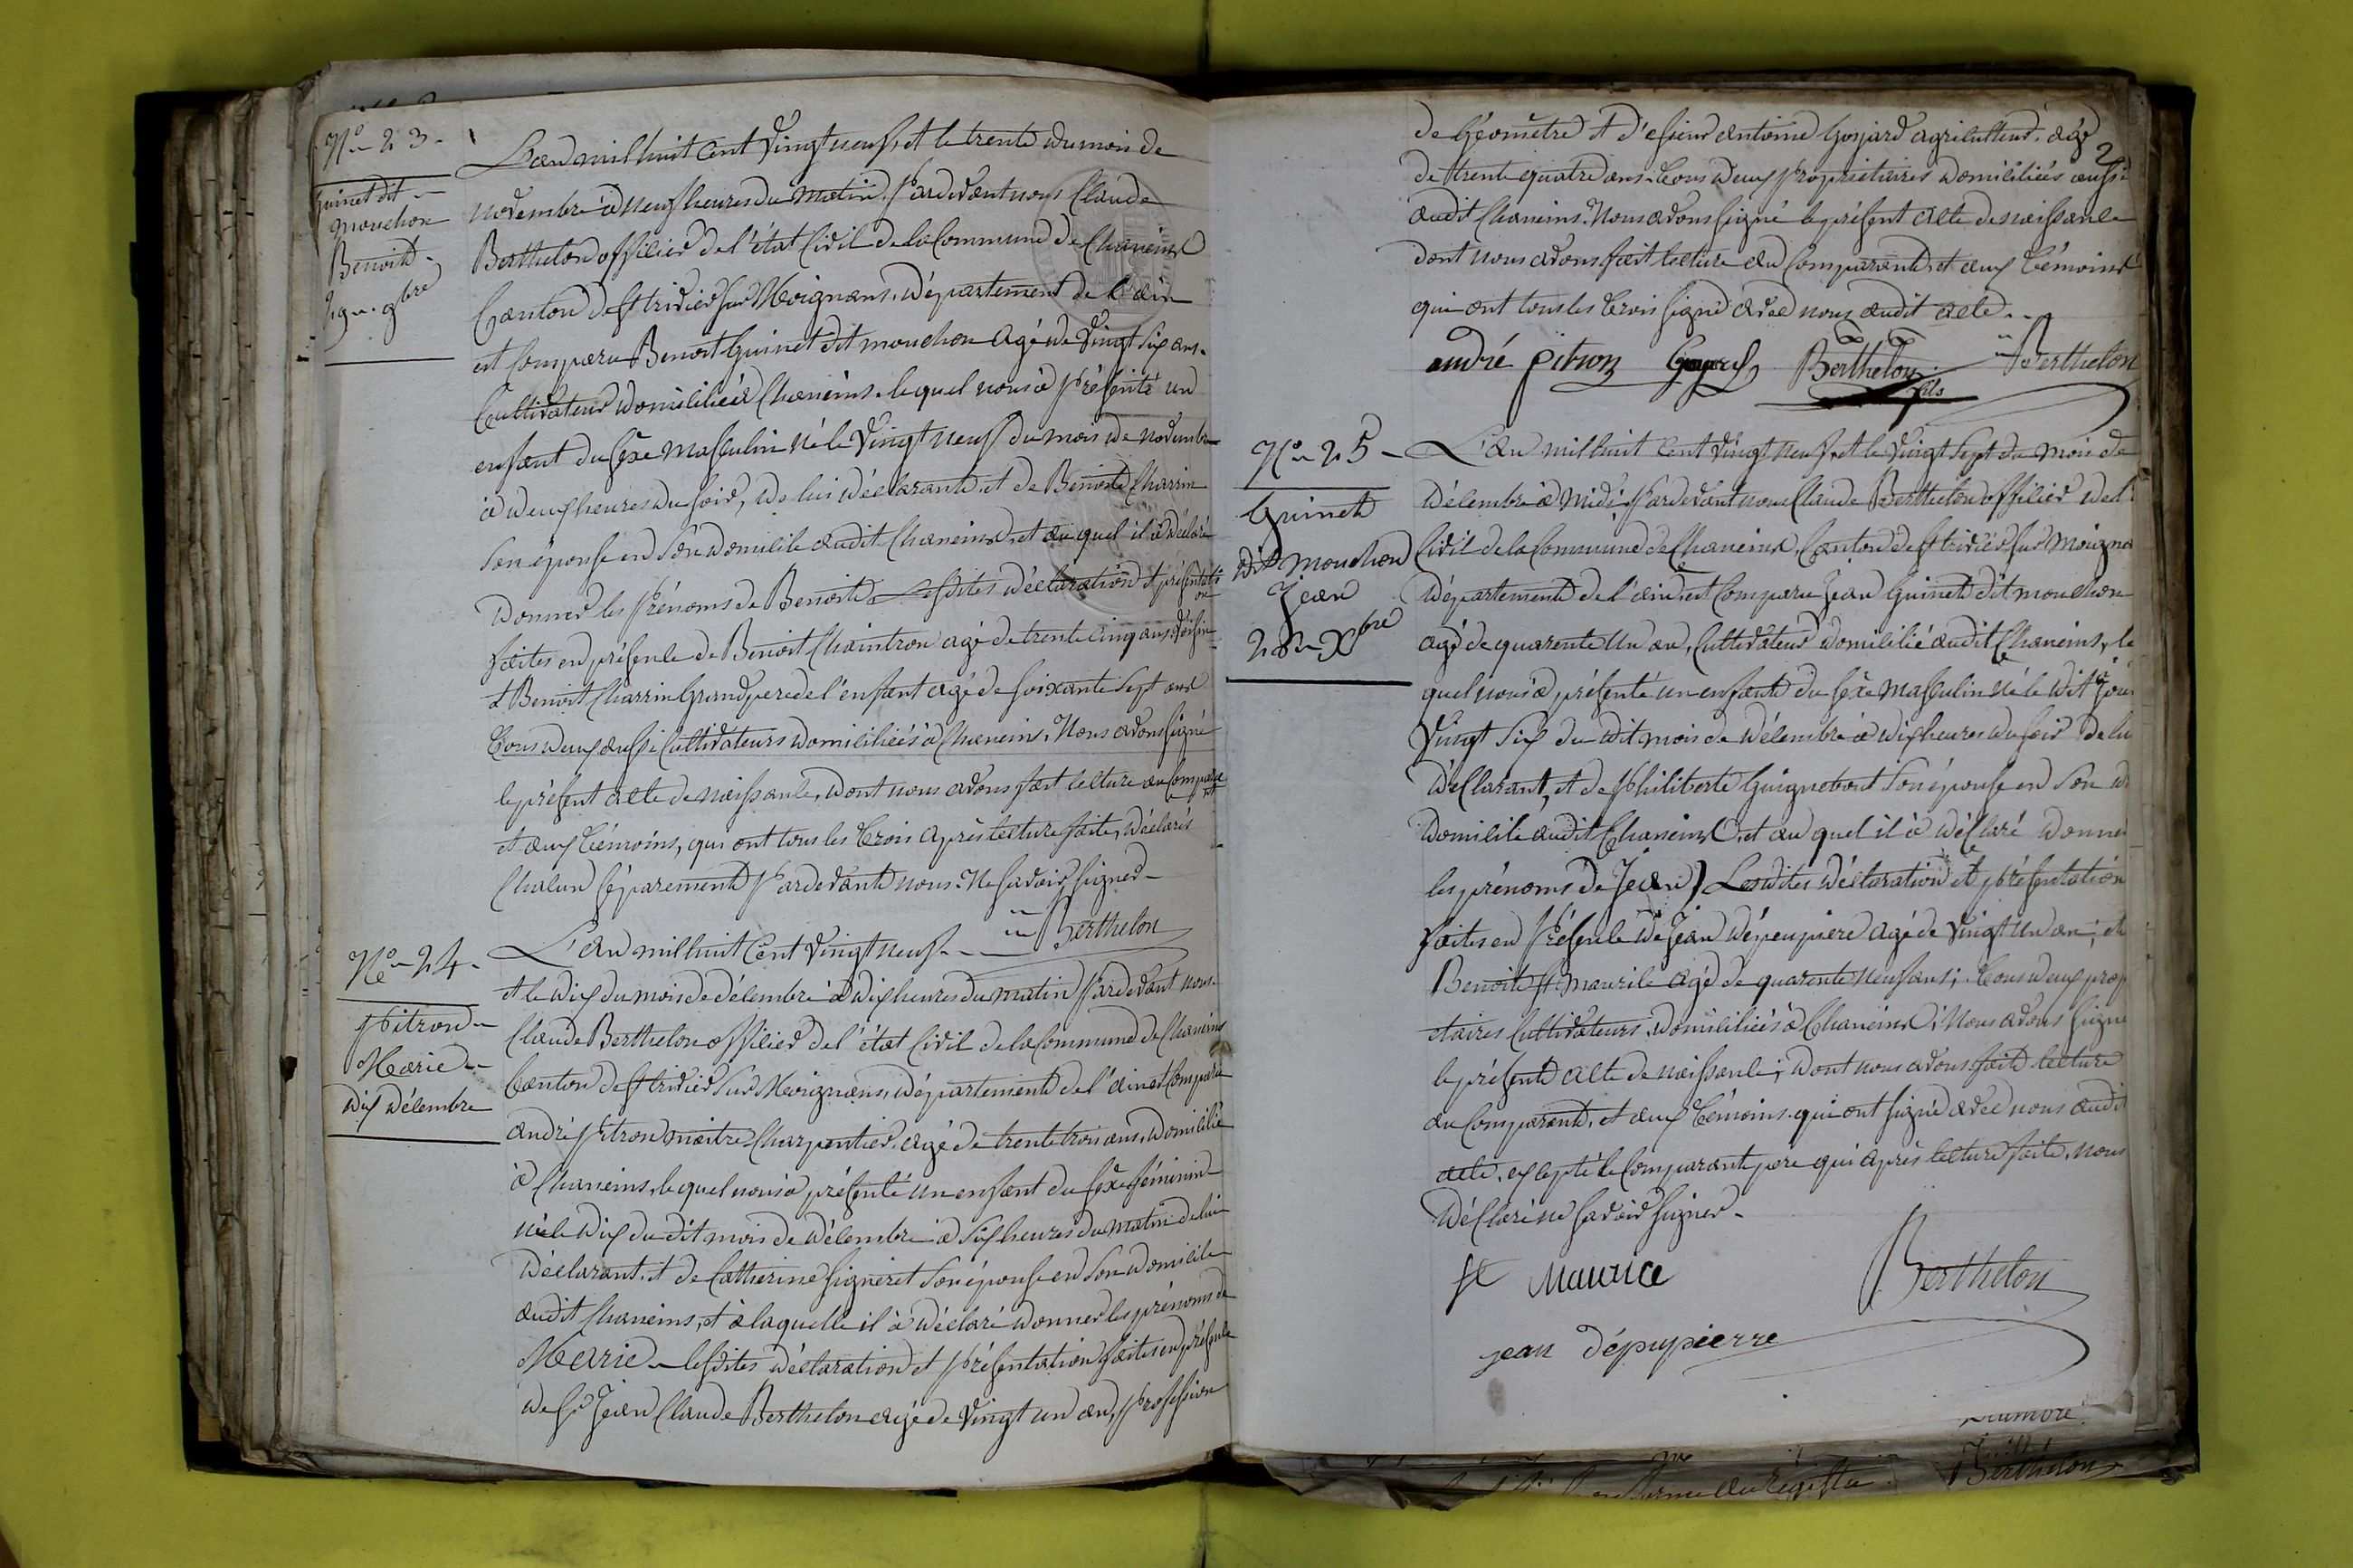 N.° 23.
Guinet dit
mouchon
Benoit
29. 9bre
L'an mil huit Cent Vingt neuf, et le trente du mois de
novembre à neuf heures du matin. Pardevant nous Claude
Berthelon officier de l'état Civil de la Commune de Chaneins
Canton de St trivier sur Moignans, département de l'ain
est Comparu Benoit Guinet dit mouchon agé de Vingt Six ans.
Cultivateur domicilié à Chaneins. lequel nous à présenté un
enfant du sexe masculin né le Vingt neuf du mois de novembre
à deux heures du soir, de lui déclarant, et de Benoite Charrin
son épouse en son domicile audit Chaneins, et au quel il à déclaré
donner les prénoms de Benoit lesdites déclaration et présentati
on
faites en présence de Benoit Chaintron agé de trente cinq ans, voisin
et Benoit Charrin Grand pere de l'enfant agé de soixante sept ans
Tous deux aussi Cultivateurs domiciliés à Chaneins. Nous avons signé
le présent acte de naissance, dont nous avons fait lecture au Compara
nt
et aux témoins, qui ont tous les trois après lecture faite, déclarés
Chacun séparement Pardevant nous. Ne savoir signer
Berthelon
N.° 24.
Pitron
Marie
dix décembre
L'an mil huit Cent Vingt neuf
et le dix du mois de décembre à dix heures du matin Pardevant nous.
Claude Berthelon officier de l'état Civil de la Commune de Chaneins
Canton de St trivier sur Moignans, département de l'ain est Comparu
andré Pitron maitre Charpentier agé de trente trois ans, domicilié
à Chaneins, lequel nous à présenté un enfant du sexe féminin
né le dix du dit mois de décembre à six heures du matin de lui
déclarant. et de Catherine Signeret son épouse en son domicile
audit Chaneins, et à laquelle il à déclaré donner les prénoms de
Marie lesdites déclaration et présentation faites en présence
de Sr Jean Claude Berthelon agé de Vingt un an, profession
de Géomètre et d'e sieur antoine Goyard agriculteur. agé
2
de trente quatre ans. tous deux propriétaires domiciliés aussi
audit Chaneins. Nous avons signé le présent acte de naissance
dont nous avons fait lecture au Comparant et aux témoins
qui ont tous les trois signé avec nous audit acte
andré pitron Goyard Berthelon fils Berthelon
N.° 25
Guinet
dit mouchon
Jean
28 Xbre
L'an mil huit Cent Vingt neuf, et le Vingt sept du mois de
décembre à midi. Pardevant nous Claude Berthelon officier de l'
Civil de la Commune de Chaneins, Canton de St trivier sur Moigna
département de l'ain, est Comparu Jean Guinet dit mouchon
agé de quarente un an, Cultivateur domicilié audit Chaneins, le
quel nous à présenté un enfant du sexe masculin né le dit jour
Vingt six du dit mois de décembre à dix heures du soir de lui
déclarant, et de Philiberte Guignebont son épouse en son d
domicile audit Chaneins, et au quel il à déclaré donner
les prénoms de Jean) Lesdites déclaration et présentation
faites en présence de Jean dépeupiere agé de Vingt un an; et
Benoit St maurice agé de quarente neuf ans; tous deux prop
etaires Cultivateurs. domiciliés à Chaneins; Nous avons signé
le présent acte de naissance; dont nous avons fait lecture
au Comparant, et aux témoins. qui ont signé avec nous audit
acte. excepté le Comparant pere qui après lecture faite, nous
déclaré ne savoir signer
st Maurice
Berthelon
jean dépupierre
Berthelon